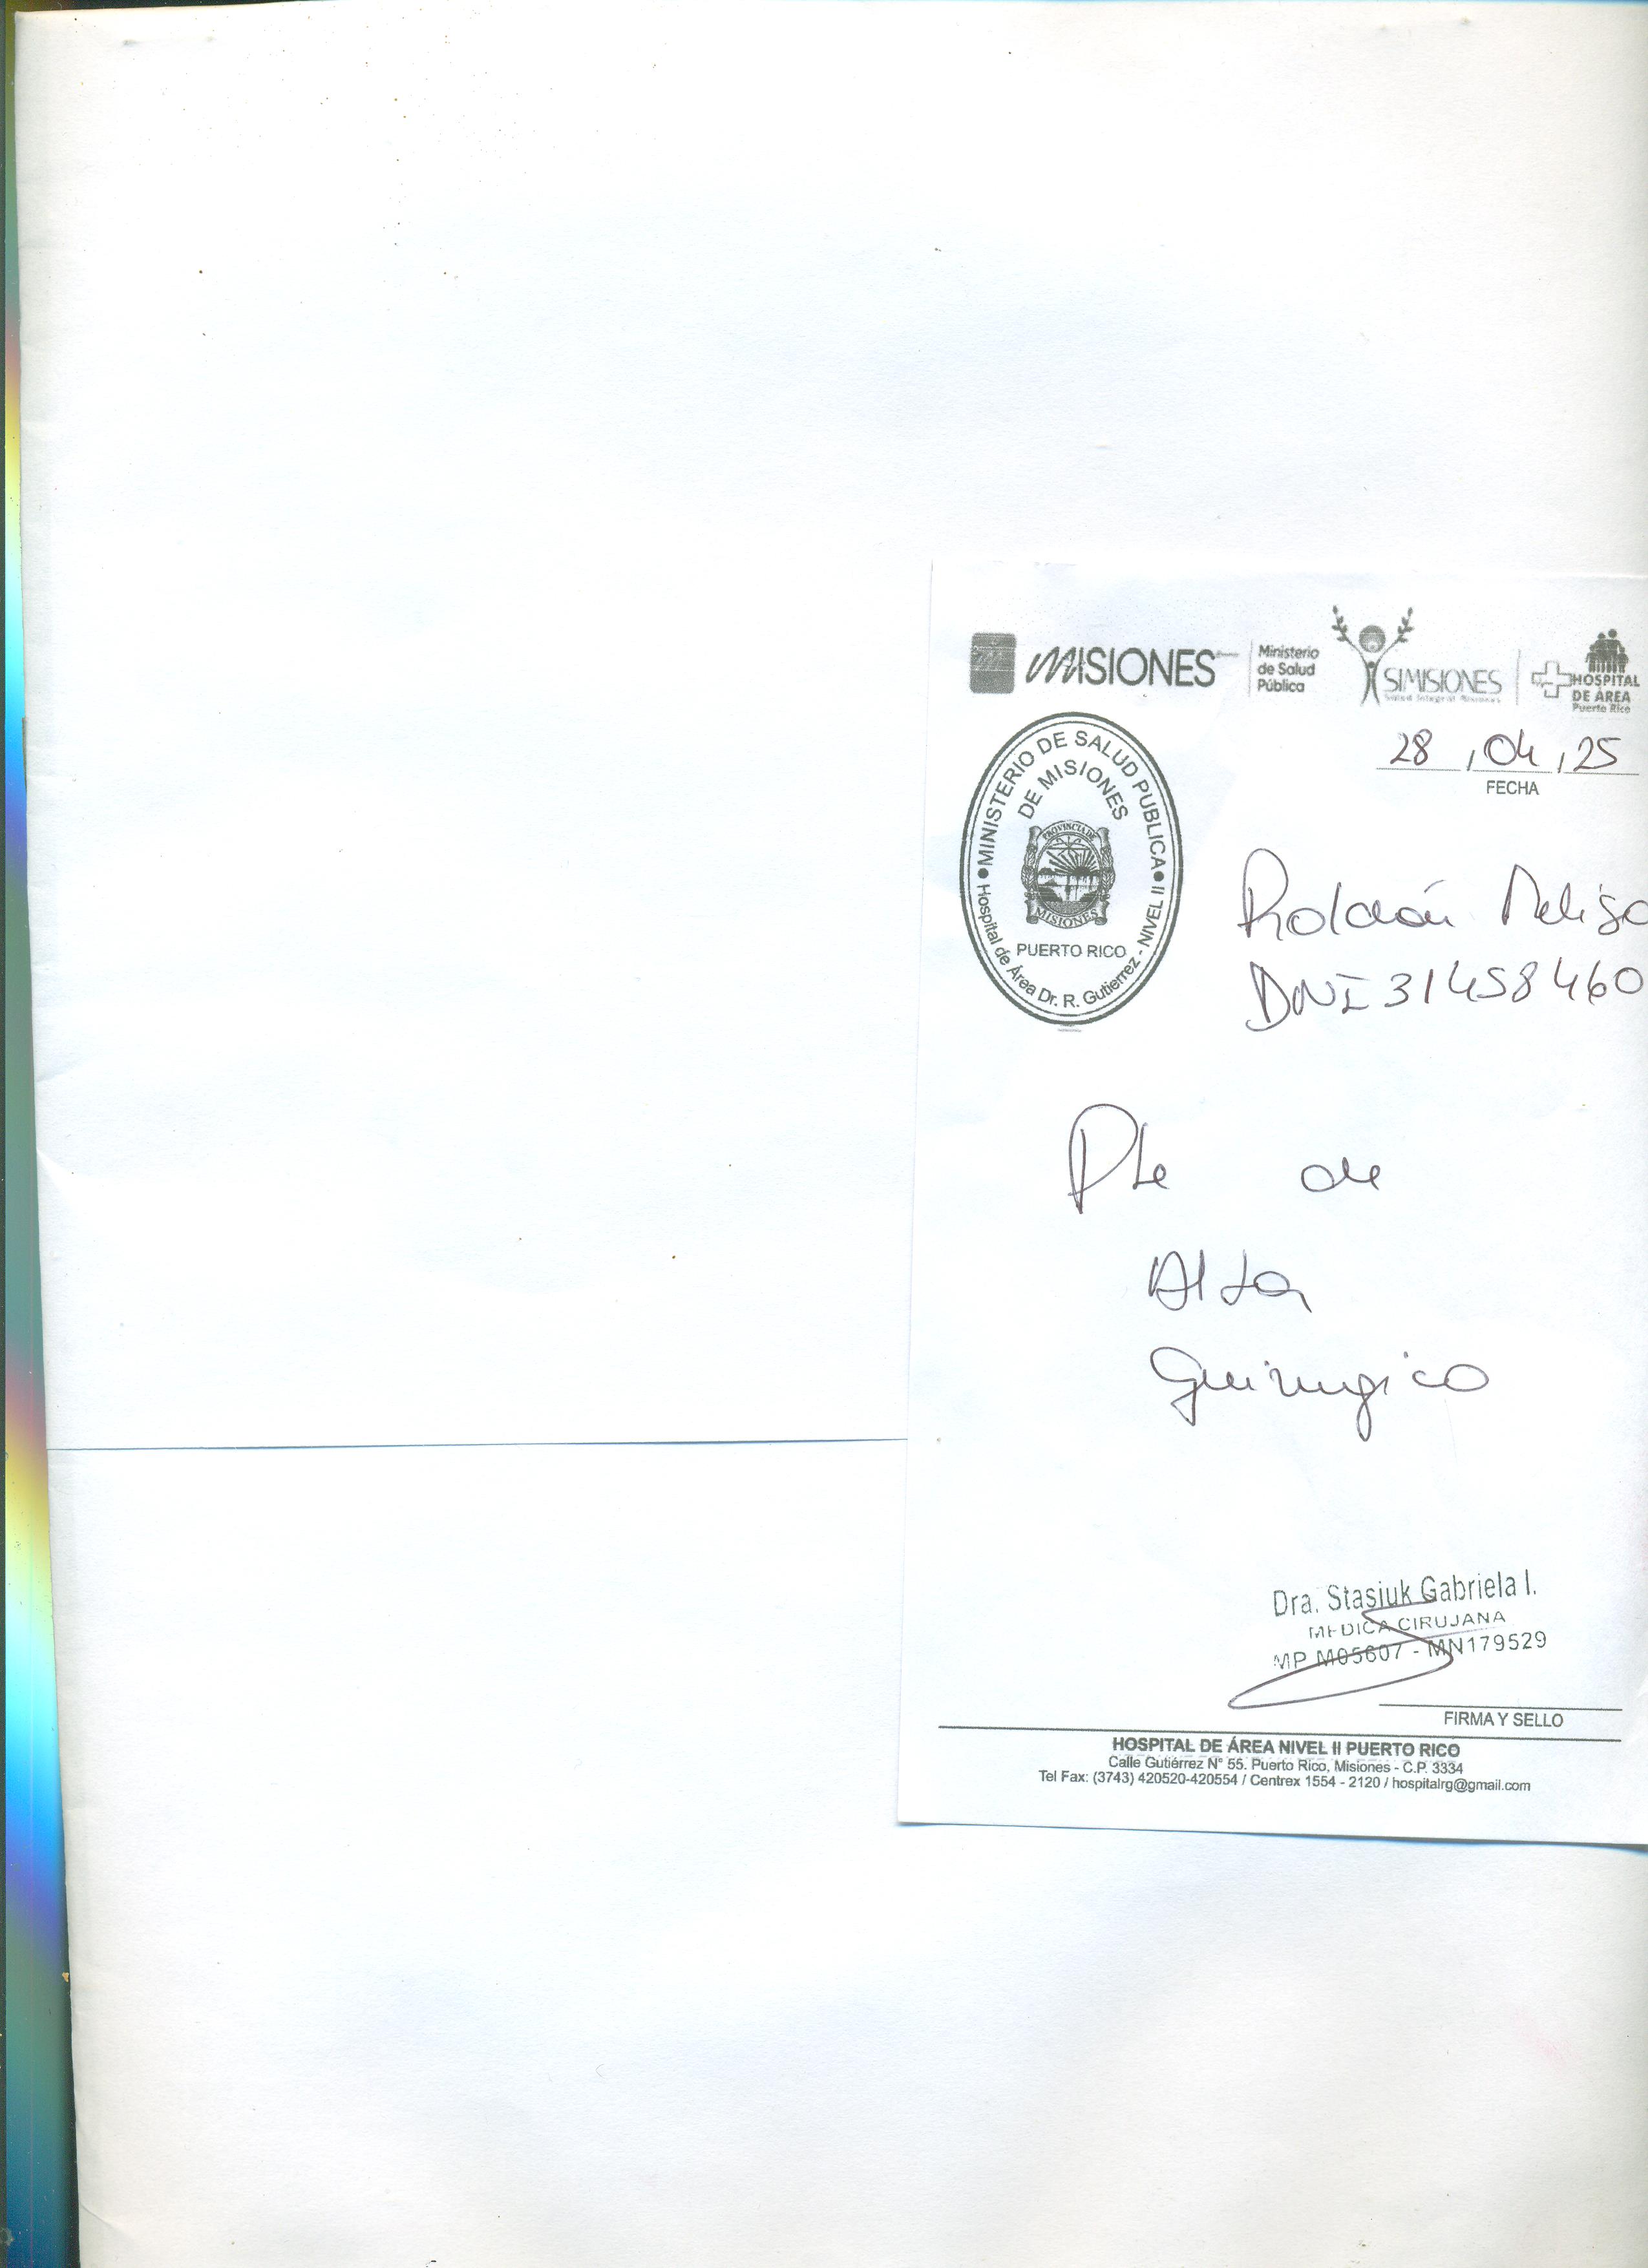 MISIONES
Ministerio
de Salud
Pública
SIMISIONES
Salud Integral Misiones
HOSPITAL
DE ÁREA
Puerto Rico
28 , 04 , 25
FECHA
MINISTERIO DE SALUD PUBLICA
DE MISIONES
PROVINCIA DE
MISIONES
PUERTO RICO
Hospital de Área Dr. R. Gutierrez - NIVEL II
Roldán Melisa
DNI 31458460
Pte de
Alta
Quirugico
Dra. Stasiuk Gabriela I.
MEDICA CIRUJANA
MP M05607 - MN179529
FIRMA Y SELLO
HOSPITAL DE ÁREA NIVEL II PUERTO RICO
Calle Gutiérrez N° 55. Puerto Rico, Misiones - C.P. 3334
Tel Fax: (3743) 420520-420554 / Centrex 1554 - 2120 / hospitalrg@gmail.com